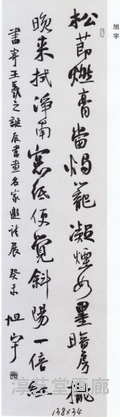 旭宇
松节燃膏当烛笼凝烟如墨暗房栊
晚来拭净南窗纸便觉斜阳一倍红
书寄王羲之诞辰书画名家邀请展癸未旭宇
138x34
淳廷堂画廊